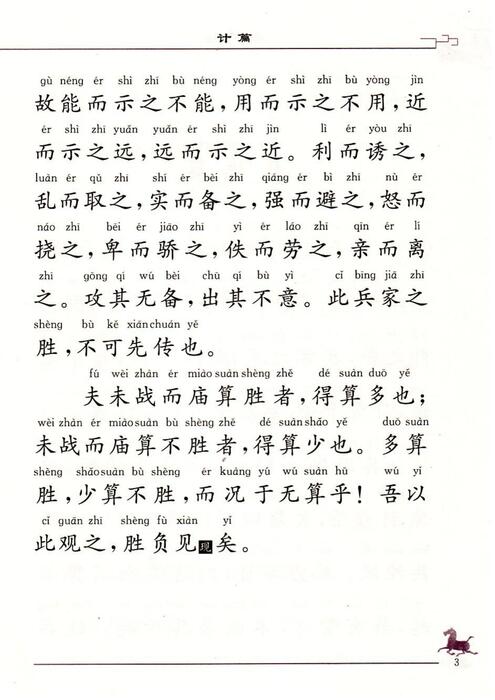 计篇
gù néng ér shì zhī bù néng yòng ér shì zhī bù yòng jìn
故能而示之不能，用而示之不用，近
ér shì zhī yuǎn yuǎn ér shì zhī jìn lì ér yòu zhī
而示之远，远而示之近。利而诱之，
luàn ér qǔ zhī shí ér bèi zhī qiáng ér bì zhī nù ér
乱而取之，实而备之，强而避之，怒而
náo zhī bēi ér jiāo zhī yì ér láo zhī qīn ér lí
挠之，卑而骄之，佚而劳之，亲而离
zhī gōng qí wú bèi chū qí bù yì cǐ bīng jiā zhī
之。攻其无备，出其不意。此兵家之
shèng bù kě xiān chuán yě
胜，不可先传也。
fú wèi zhàn ér miào suàn shèng zhě dé suàn duō yě
夫未战而庙算胜者，得算多也；
wèi zhàn ér miào suàn bù shèng zhě dé suàn shǎo yě duō suàn
未战而庙算不胜者，得算少也。多算
shèng shǎo suàn bù shèng ér kuàng yú wú suàn hū wú yǐ
胜，少算不胜，而况于无算乎！吾以
cǐ guān zhī shèng fù xiàn yǐ
此观之，胜负见现矣。
3